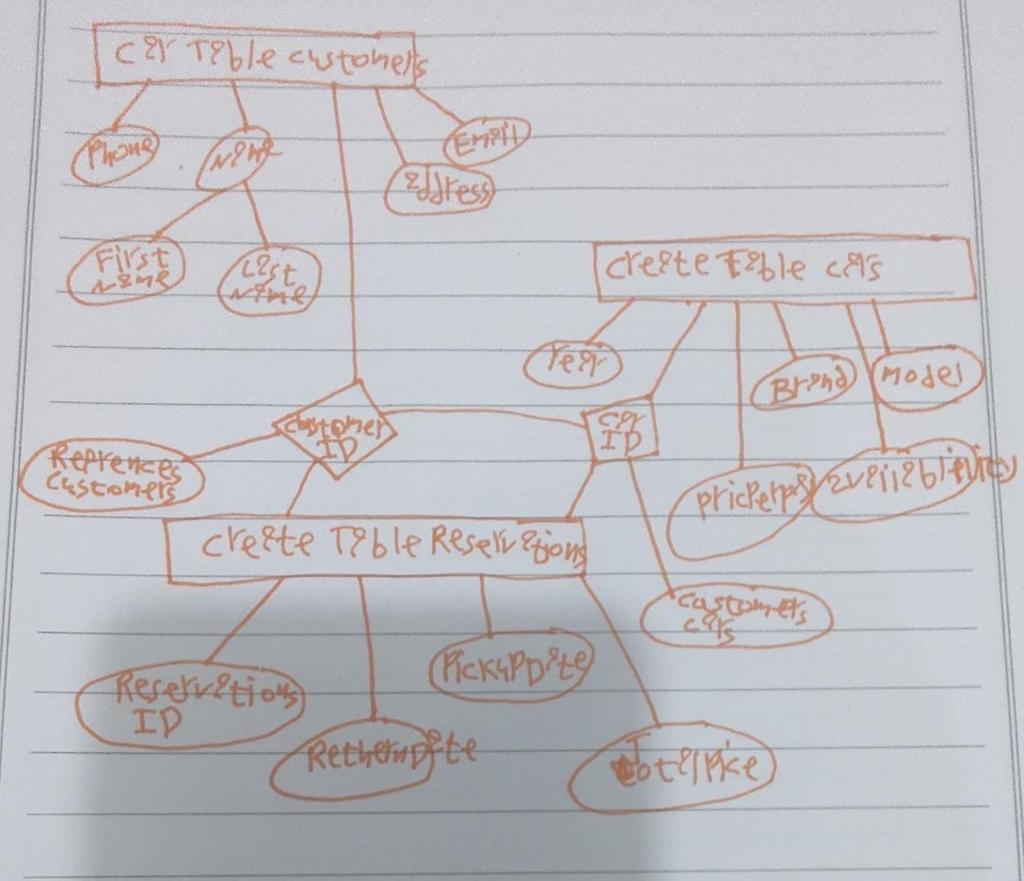 Car Table customers
Phone
Name
Email
address
First
Name
Last
Name
create Table cars
Year
Brand
Model
customer
ID
car
ID
Reprences
customers
pricPerpay
availiablievity
create Table Reservations
customers
cars
PickupDate
Reservations
ID
Rethernpate
totalpice